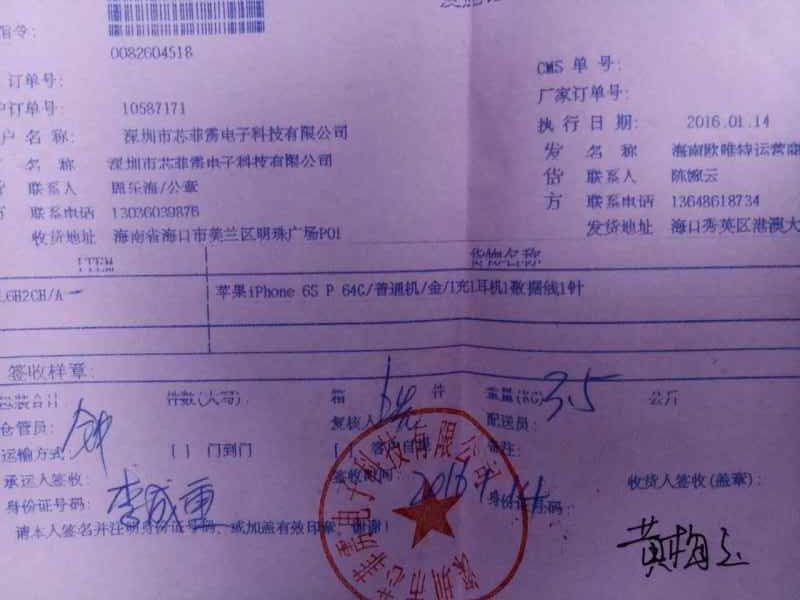 指令:
0082604518
订单号:
CMS 单 号:
户订单号: 10587171
厂家订单号:
户 名 称: 深圳市芯菲雳电子科技有限公司
执 行 日 期: 2016.01.14
名 称 深圳市芯菲雳电子科技有限公司
发 名 称 海南欧唯特运营商
货 联系人 /公章
货 联系人 陈婉云
方 联系电话 13036039876
方 联系电话 13648618734
收货地址 海南省海口市美兰区明珠广场P01
发货地址 海口秀英区港澳大
ITEM 货物名称
L6H2CH/A
苹果iPhone 6S P 64G/普通机/金/1充1耳机1数据线1针
签收样章:
包装合计: 件数(大写): 箱 件 重量(KG) 35 公斤
仓管员: 复核人 配送员:
运输方式 [ ] 门到门 [ 客户自提 备注:
承运人签收: 签收时间: 2016 1 14 收货人签收(盖章):
身份证号码: 李成重 身份证号码:
请本人签名并注明身份证号码、或加盖有效印章，谢谢!
黄梅玉
深圳市芯菲雳电子科技有限公司